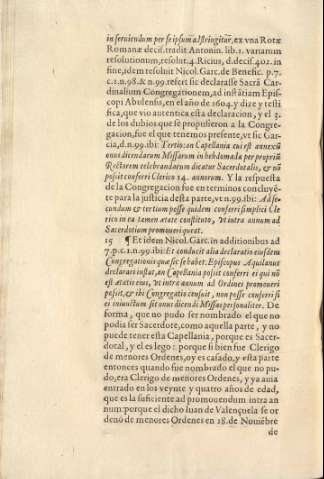 inserviendum per se ipsum adstringitur, ex vna Rotæ
Romanæ decis. tradit Antonin. lib. 1. variarum
resolutionum, resolut. 4. Ricius, d. decis. 402. in
fine, idem resoluit Nicol. Garc. de Benefic. p. 7.
c. 1. n. 98. & n. 99. refert sic declarasse Sacrā Car-
dinalium Congregationem, ad instātiam Epis-
copi Abulensis, en el año de 1604. y dize y testi
fica, que vio autentica esta declaracion, y el 3.
de los dubios que se propusieron a la Congre-
gacion, fue el que tenemos presente, vt sic Gar-
cia, d. n. 99. ibi: Tertio: an Capellania cui est annexū
onus dicendarum Missarum in hebdomada per propriū
Rectorem celebrandarum dicatur Sacerdotalis, & nō
possit conferri Clerico 14. annorum. Y la respuesta
de la Congregacion fue en terminos concluyē-
te para la justicia desta parte, vt n. 99. ibi: Ad se-
cundum & tertium posse quidem conferri simplici Cle
rico in ea tamen ætate constituto, vt intra annum ad
Sacerdotium promoueri queat.
15 ¶ Et idem Nicol. Garc. in additionibus ad
7. p. c. 1. n. 99. ibi: Et conducit alia declaratio eiusdem
Congregationis quæ sic se habet. Episcopus Aquilanus
declarari instat, an Capellania possit conferri ei qui nō
est ætatis eius, vt intra annum ad Ordines promoueri
possit, & ibi Congregatio censuit, non posse conferri si
ei iniunctum sit onus dicendi Missas personaliter. De
forma, que no pudo ser nombrado el que no
podia ser Sacerdote, como aquella parte, y no
puede tener esta Capellania, porque es Sacer-
dotal, y el es lego: porque si bien fue Clerigo
de menores Ordenes, oy es casado, y esta parte
entonces quando fue nombrado el que no pu-
do, era Clerigo de menores Ordenes, y ya auia
entrado en los veynte y quatro años de edad,
que es la suficiente ad promouendum intra an
num: porque el dicho Iuan de Valençuela se or
denò de menores Ordenes en 18. de Nouiēbre
de